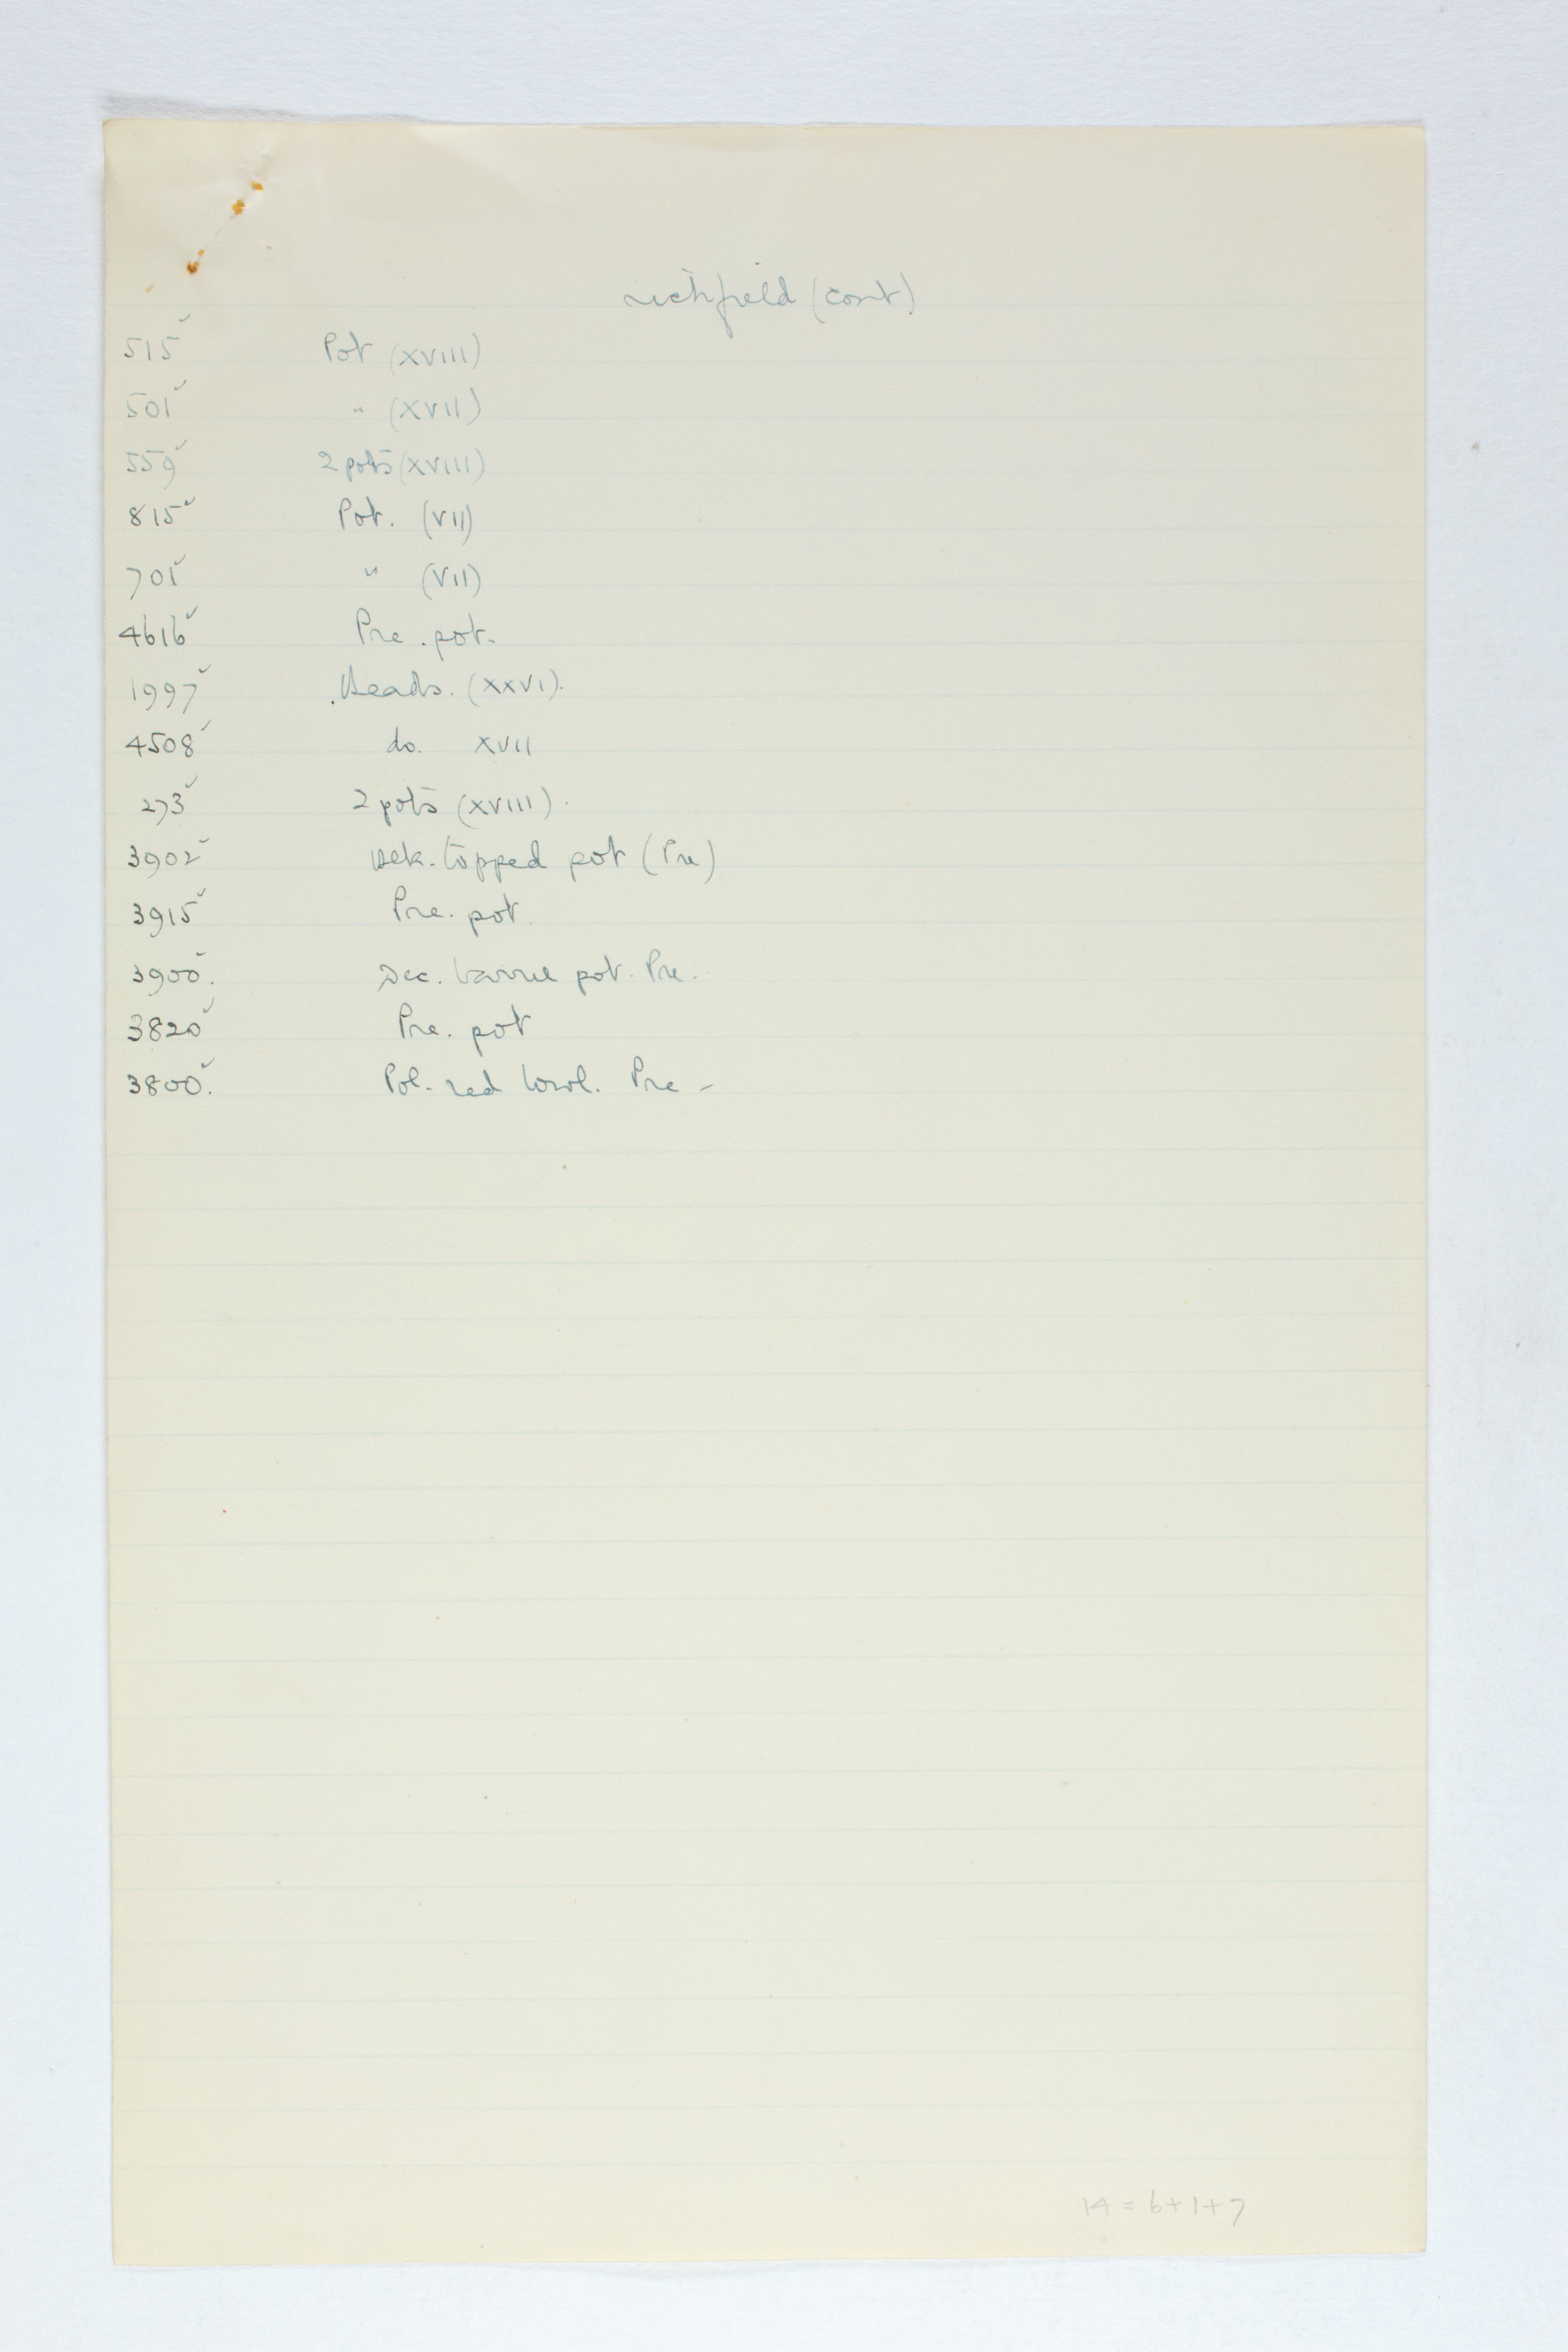 Lichfield (cont)
515 ✓ Pot (XVIII)
501 ✓ " (XVII)
559 ✓ 2 pots (XVIII)
815 ✓ Pot. (VII)
701 ✓ " (VII)
4616 ✓ Pre. pot.
1997 ✓ Beads. (XXVI).
4508 ✓ do. XVII
273 ✓ 2 pots (XVIII).
3902 ✓ Blk. topped pot (Pre)
3915 ✓ Pre. pot.
3900. ✓ Dec. barrel pot. Pre.
3820 ✓ Pre. pot
3800. ✓ Pol. red bowl. Pre -
14 = 6+1+7